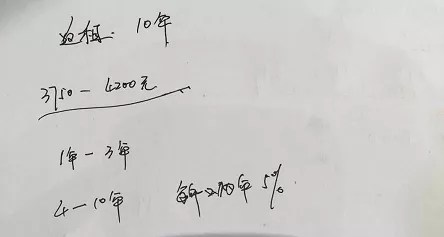 返租: 10年
3750-4200元
1年-3年
4-10年 每 年 5%